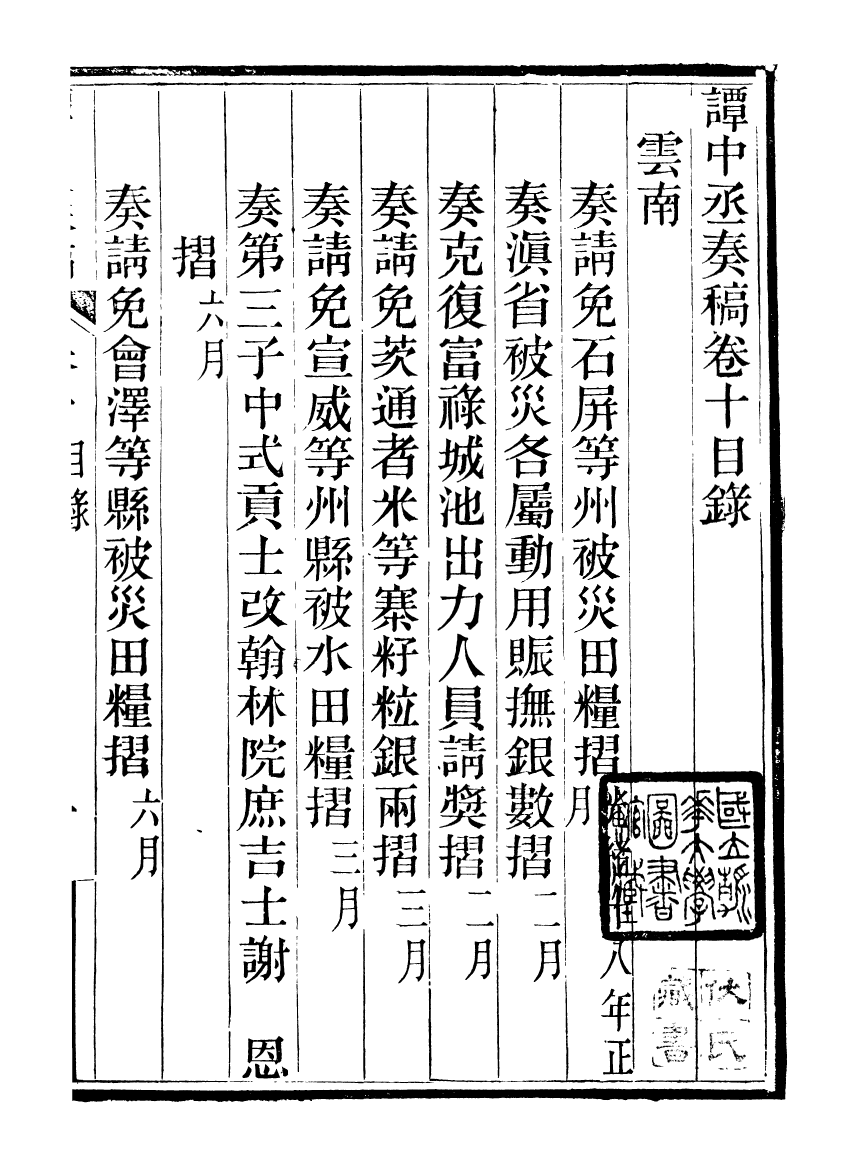 譚中丞奏稿卷十目錄
雲南
奏請免石屏等州被災田糧摺 光緒 八年正月
奏滇省被災各屬動用賑撫銀數摺 二月
奏克復富祿城池出力人員請獎摺 二月
奏請免茨通者米等寨籽粒銀兩摺 三月
奏請免宣威等州縣被水田糧摺 三月
奏第三子中式貢士改翰林院庶吉士謝 恩
摺 六月
奏請免會澤等縣被災田糧摺 六月
目錄
國立 大學圖書
氏藏書